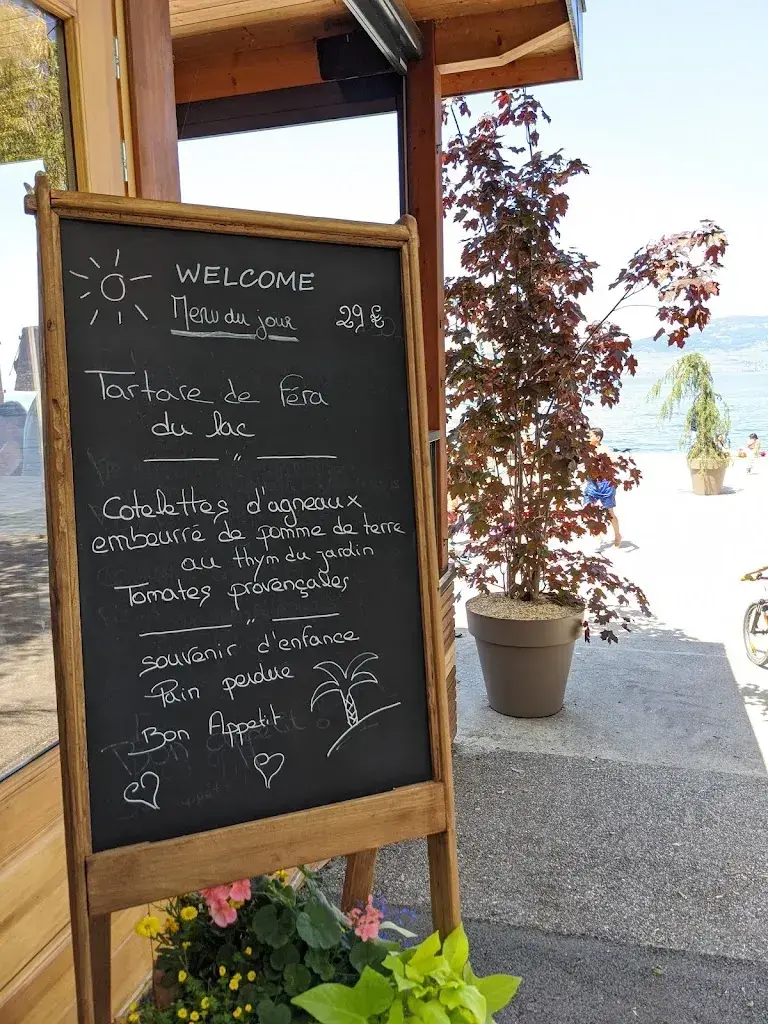 WELCOME
Menu du jour 29 €
Tartare de Féra
du lac
"
Cotelettes d'agneaux
embeurré de pomme de terre
au thym du jardin
Tomates provençales
"
souvenir d'enfance
Pain perdue
Bon Appetit